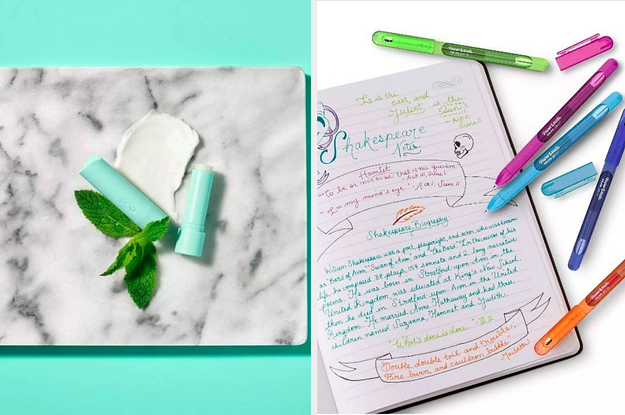 Is is the
east, and
Juliet is the
Sun
Act 2
Scene II
Shakespeare
Notes
Hamlet
"To be or not to be that is the question"
Act III, Scene I
"In my mind's eye" Act I, Scene II
Shakespeare Biography:
William Shakespeare was a poet, playwright, and actor who was known
as "Bard of Avon," "Swan of Avon," and "the Bard". In the course of his
life, he composed 38 plays, 154 sonnets and 2 long narrative
poems. He was born in Stratford-upon-Avon in the
United Kingdom, was educated at King's New School,
then he died in Stratford-upon Avon in the United
Kingdom. He married Anne Hathaway and had three
children named Suzanna, Hamnet and Judith.
"What's done is done."
"Double, double toil and trouble,
Fire burn and cauldron bubble"
Macbeth